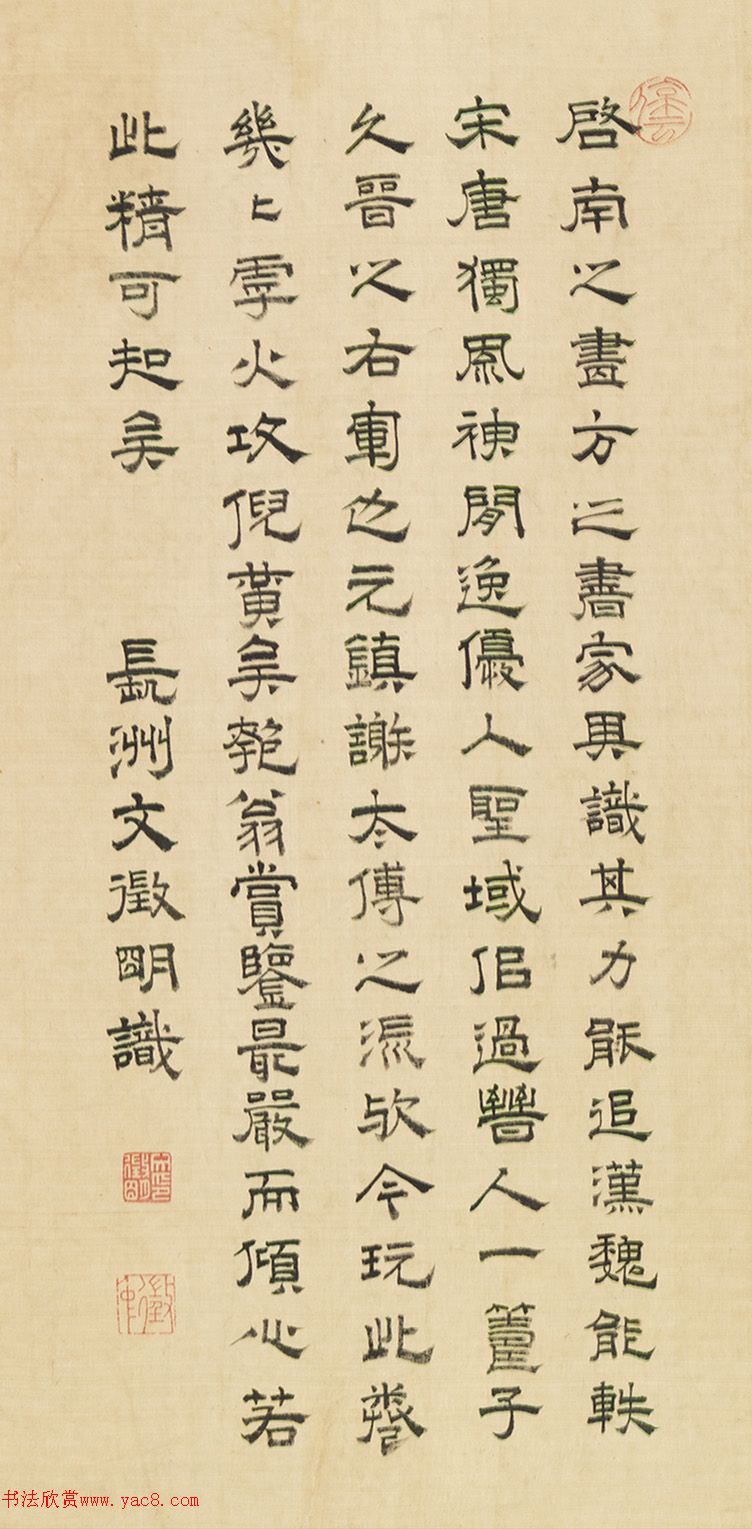 停雲
啓南之畫方之書家具識其力能追漢魏能軼
宋唐獨風神閒逸優入聖域佀過晉人一籌子
久晉之右軍也元鎮謝太傅之派歟今玩此卷
幾〻虖火攻倪黃矣匏翁賞鑒最嚴而傾心若
此精可知矣 長洲文徵明識
文徵明印
徵仲
书法欣赏www.yac8.com